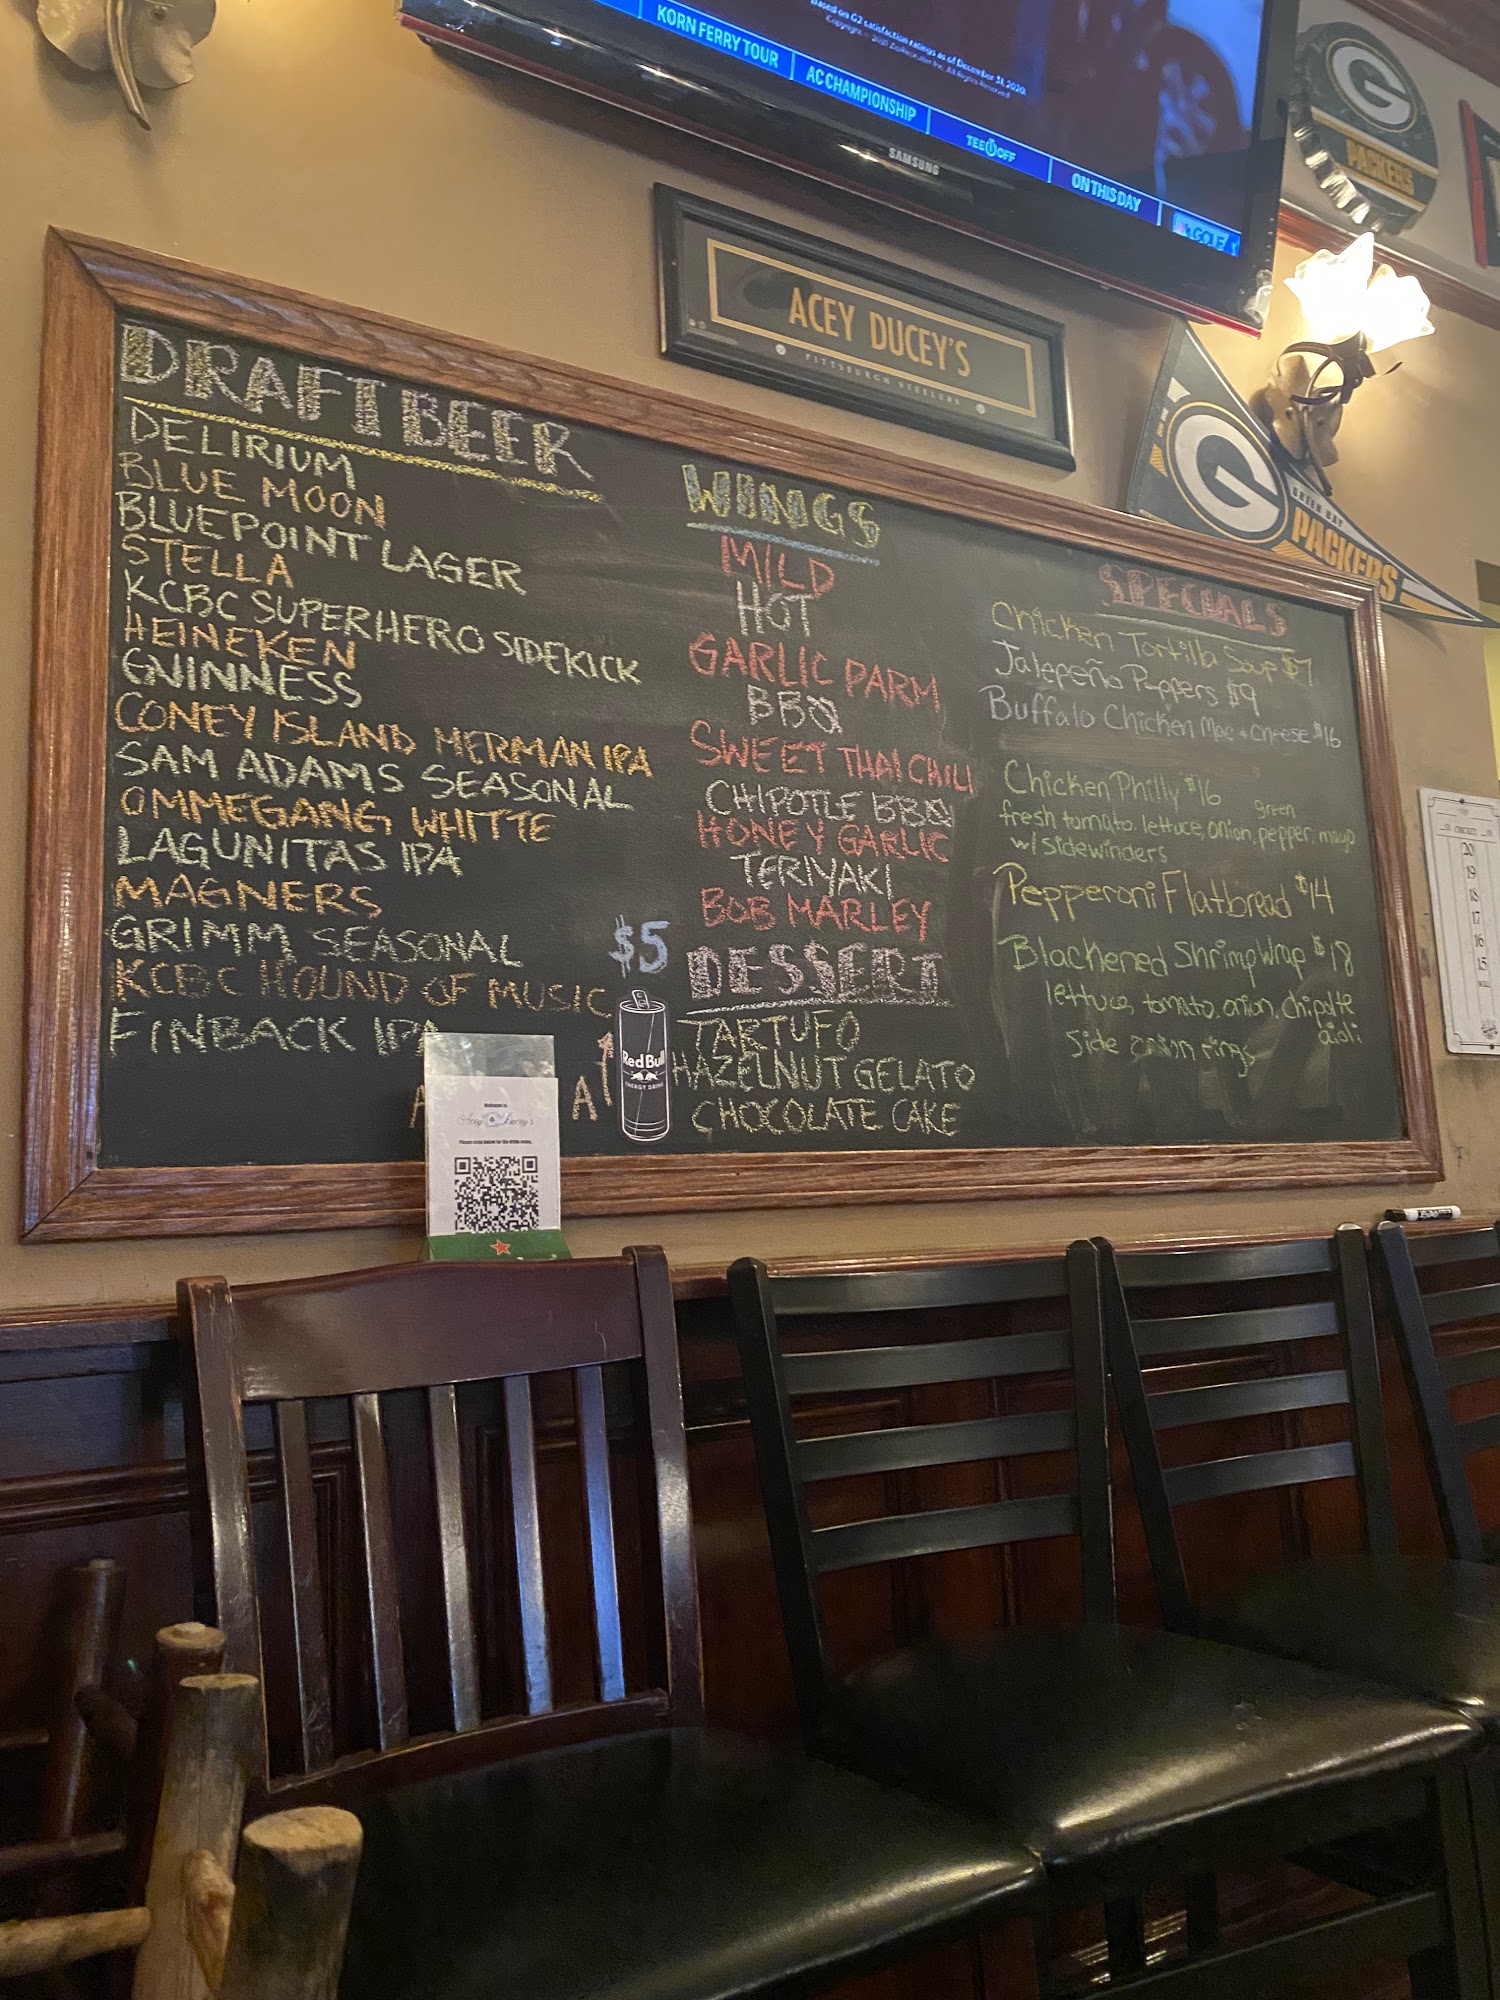 Based on G2 satisfaction ratings as of December 31, 2020.
KORN FERRY TOUR
AC CHAMPIONSHIP
TEE OFF
ON THIS DAY
GOLF
SAMSUNG
G
PACKERS
ACEY DUCEY'S
PITTSBURGH STEELERS
G
GREEN BAY
PACKERS
DRAFT BEER
DELIRIUM
BLUE MOON
BLUEPOINT LAGER
STELLA
KCBC SUPERHERO SIDEKICK
HEINEKEN
GUINNESS
CONEY ISLAND MERMAN IPA
SAM ADAMS SEASONAL
OMMEGANG WHITTE
LAGUNITAS IPA
MAGNERS
GRIMM SEASONAL
KCBC HOUND OF MUSIC
FINBACK IPA
WINGS
MILD
HOT
GARLIC PARM
BBQ
SWEET THAI CHILI
CHIPOTLE BBQ
HONEY GARLIC
TERIYAKI
BOB MARLEY
$5
Red Bull
ENERGY DRINK
DESSERT
TARTUFO
HAZELNUT GELATO
CHOCOLATE CAKE
SPECIALS
Chicken Tortilla Soup $7
Jalepeño Peppers $9
Buffalo Chicken Mac + Cheese $16
Chicken Philly $16
fresh tomato, lettuce, onion, green pepper, mayo
w/ sidewinders
Pepperoni Flatbread $14
Blackened Shrimp Wrap $18
lettuce, tomato, onion, chipotle
aioli
side onion rings
Welcome to
Acey Ducey's
20
19
18
17
16
15